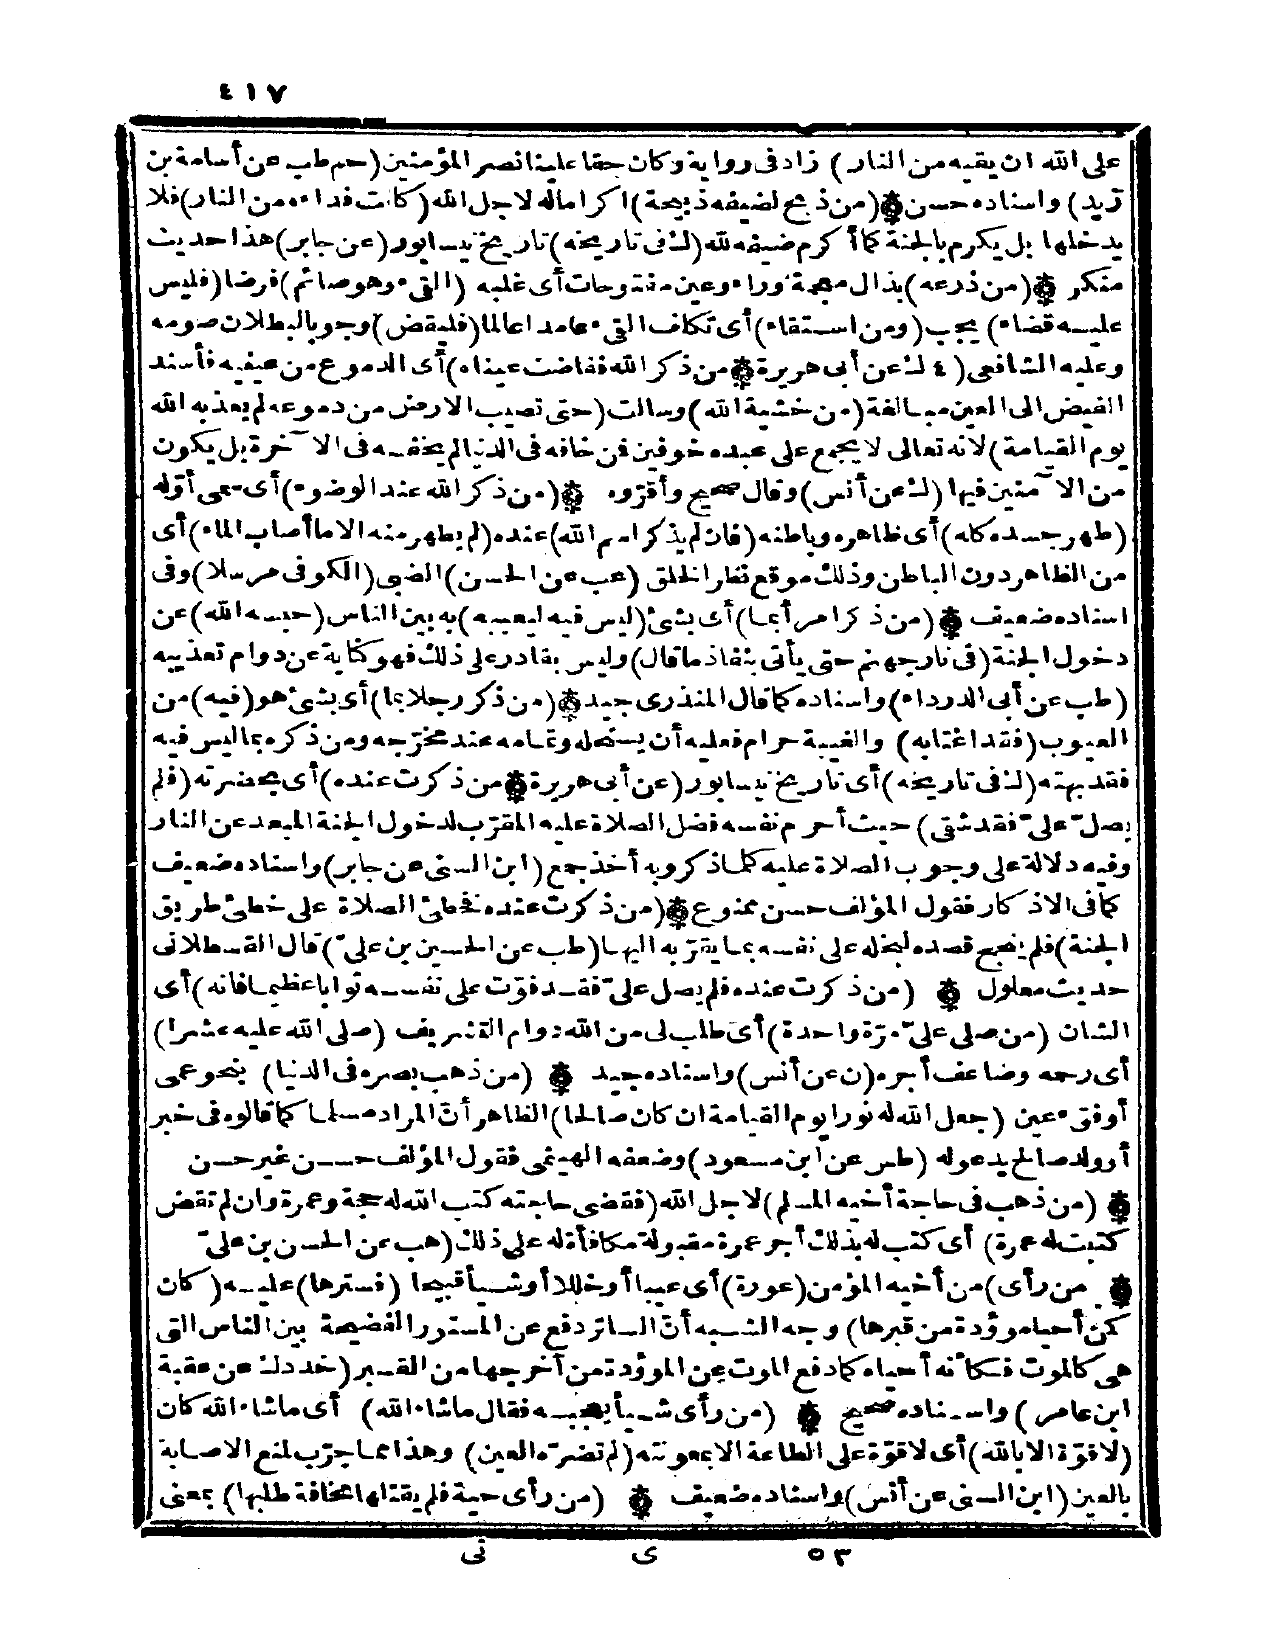 ٤١٧
على الله ان يقيه من النار) زاد فى رواية وكان حقا علينا نصر المؤمنين (حم طب عن أسامة بن
زيد) واسناده حسن ۞ (من ذبح لضيفه ذبيحة) اكراماله لاجل الله (كانت فداءه من النار) فلا
يدخلها بل يكرم بالجنة كما أكرم ضيفه لله (ك فى تاريخه) تاريخ نيسابور (عن جابر) هذا حديث
منكر ۞ (من ذرعه) بذال معجمة وراء وعين مفتوحات أى غلبه (القىء وهو صائم) فرضا (فليس
عليه قضاء) يجب (ومن استقاء) أى تكلف القىء عامدا عالما (فليقض) وجوبا لبطلان صومه
وعليه الشافعى (٤ ك عن أبى هريرة ۞ من ذكر الله ففاضت عيناه) أى الدموع من عينيه فأسند
الفيض الى العين مبالغة (من خشية الله) وسالت (حتى تصيب الارض من دموعه لم يعذبه الله
يوم القيامة) لانه تعالى لا يجمع على عبده خوفين فمن خافه فى الدنيا لم يخفه فى الآخرة بل يكون
من الآمنين فيها (ك عن أنس) وقال صحيح وأقروه ۞ (من ذكر الله عند الوضوء) أى سمى أوّله
(طهر جسده كله) أى ظاهره وباطنه (فان لم يذكر اسم الله) عنده (لم يطهر منه الا ما أصاب الماء) أى
من الظاهر دون الباطن وذلك موقع نظر الخلق (عب عن الحسن) الضبى (الكوفى مرسلا) وفى
اسناده ضعيف ۞ (من ذكر امرأ بما) أى بشئ (ليس فيه ليعيبه) به بين الناس (حبسه الله) عن
دخول الجنة (فى نار جهنم حتى يأتى بنفاذ ما قال) وليس بقادر على ذلك فهو كناية عن دوام تعذيبه
(طب عن أبى الدرداء) واسناده كما قال المنذرى جيد ۞ (من ذكر رجلا بما) أى بشئ هو (فيه) من
العيوب (فقد اغتابه) والغيبة حرام فعليه أن يستحله وتمامه عند مخرّجه ومن ذكره بما ليس فيه
فقد بهته (ك فى تاريخه) أى تاريخ نيسابور (عن أبى هريرة ۞ من ذكرت عنده) أى بحضرته (فلم
يصل علىّ فقد شقى) حيث أحرم نفسه فضل الصلاة عليه المقرّب لدخول الجنة المبعد عن النار
وفيه دلالة على وجوب الصلاة عليه كلما ذكر وبه أخذ جمع (ابن السنى عن جابر) واسناده ضعيف
كما فى الاذكار فقول المؤلف حسن ممنوع ۞ (من ذكرت عنده فخطئ الصلاة على خطئ طريق
الجنة) فلم ينجح قصده لبخله على نفسه بما يقرّبه اليها (طب عن الحسين بن علىّ) قال القسطلانى
حديث معلول ۞ (من ذكرت عنده فلم يصل علىّ فقد فوّت على نفسه ثوابا عظيما فانه) أى
الشان (من صلى علىّ مرّة واحدة) أى طلب لى من الله دوام التشريف (صلى الله عليه عشرا)
أى رحمه وضاعف أجره (ن عن أنس) واسناده جيد ۞ (من ذهب بصره فى الدنيا) بنحو عمى
أو فقء عين (جعل الله له نورا يوم القيامة ان كان صالحا) الظاهر أنّ المراد مسلما كما قالوه فى خبر
أو ولد صالح يدعوله (طس عن ابن مسعود) وضعفه الهيثمى فقول المؤلف حسن غير حسن
۞ (من ذهب فى حاجة أخيه المسلم) لاجل الله (فقضى حاجته كتب الله له حجة وعمرة وان لم تقض
كتبت له عمرة) أى كتب له بذلك أجر عمرة مقبولة مكافأة له على ذلك (هب عن الحسن بن علىّ
۞ من رأى) من أخيه المؤمن (عورة) أى عيبا أو خللا أو شيأ قبيحا (فسترها) عليه (كان
كمن أحيا موؤدة من قبرها) وجه الشبه أنّ الساتر دفع عن المستور الفضيحة بين الناس التى
هى كالموت فكأنه أحياه كما دفع الموت عن الموؤدة من أخرجها من القبر (خد د ك عن عقبة
ابن عامر) واسناده صحيح ۞ (من رأى شيأ يعجبه فقال ما شاء الله) أى ما شاء الله كان
(لا قوّة الا بالله) أى لا قوّة على الطاعة الا بمعونته (لم تضرّه العين) وهذا مما جرّب لمنع الاصابة
بالعين (ابن السنى عن أنس) واسناده ضعيف ۞ (من رأى حية فلم يقتلها مخافة طلبها) بمعنى
٥٣ ى نى